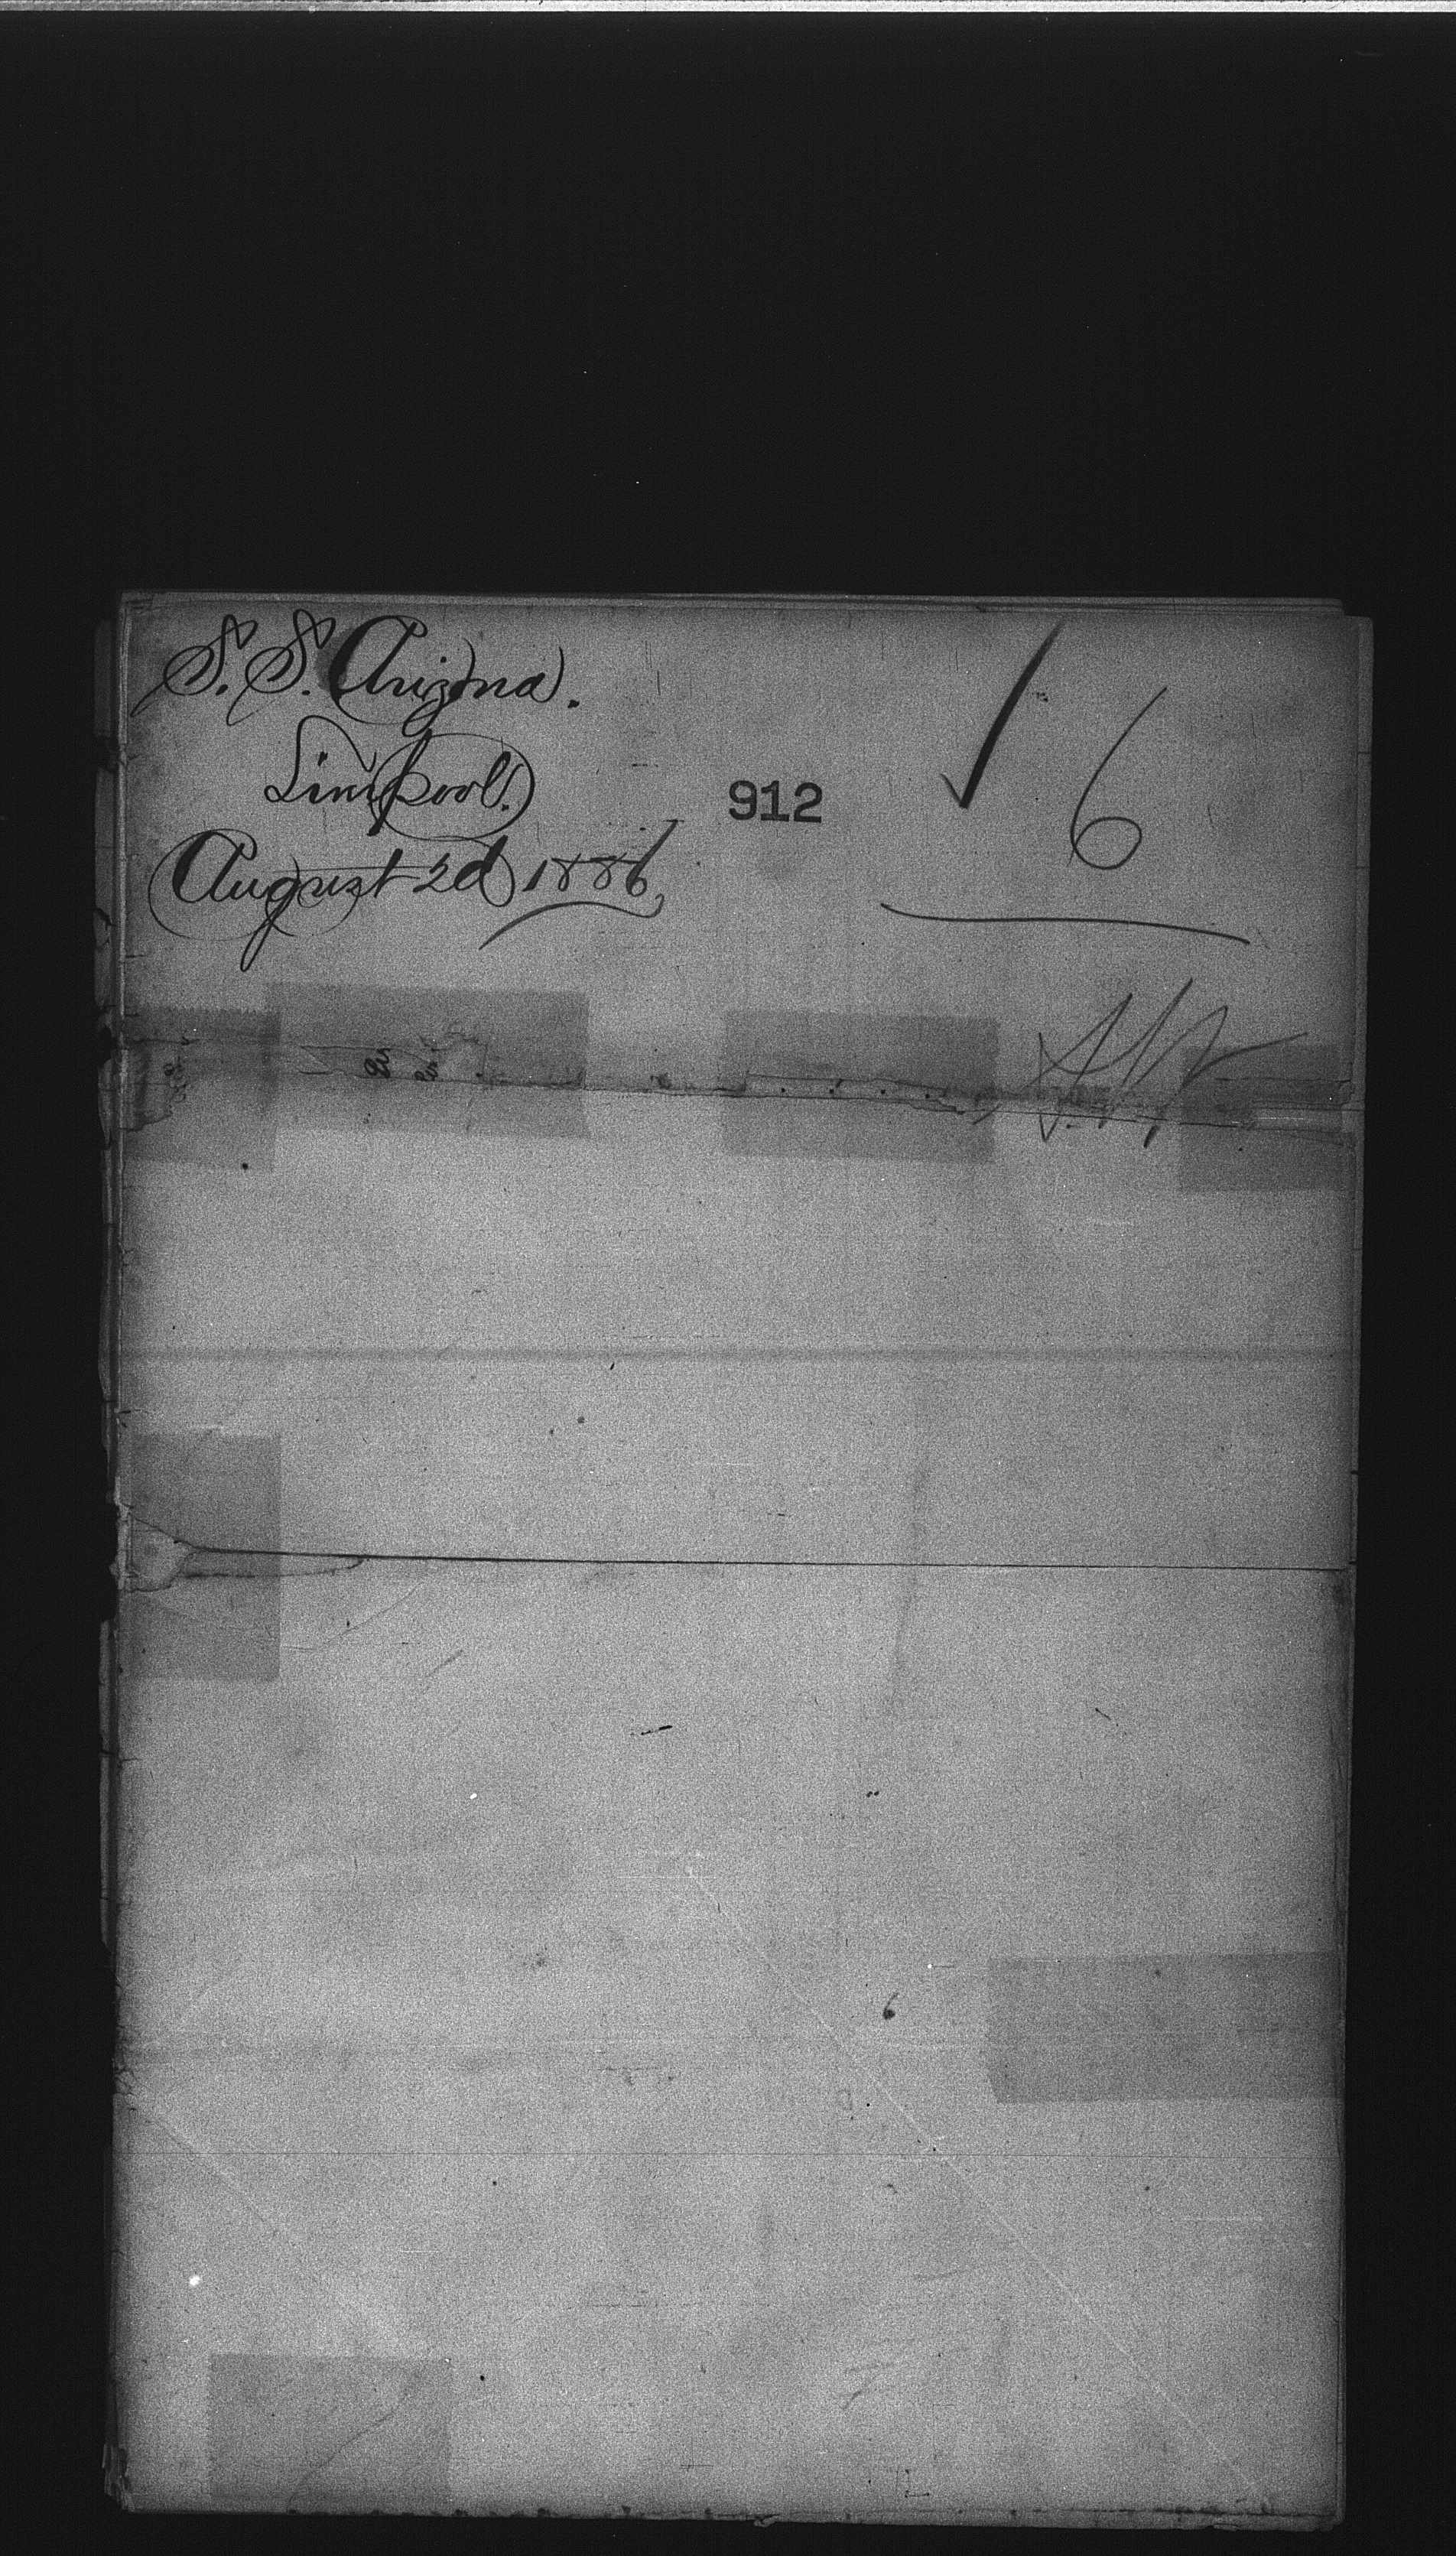 S. S. Arizona.
Liverpool.
August 2d 1886
912
✓ 6